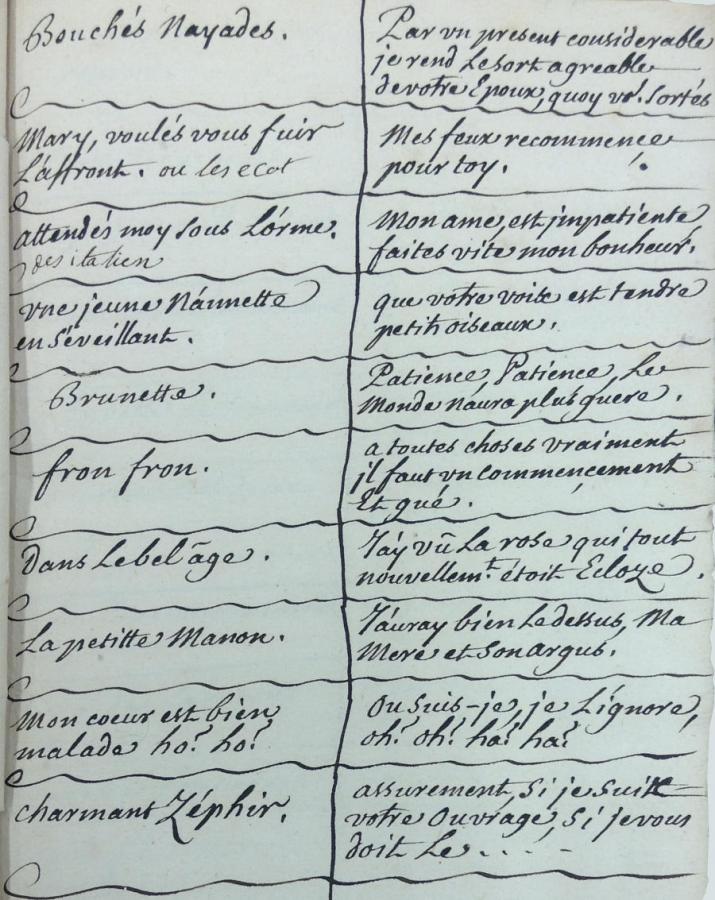 Bouchés Nayades.
Par vn present considerable
je rend Le sort agreable
de votre Epoux, quoy vo.ˢ Sortés
Mary, voulés vous fuir
L'affront. ou les ecot
Mes feux recommence
pour toy.
attendés moy sous L'órme.
des italien
Mon ame, est jnpatiente
faites vite mon bonheur.
vne jeune Nánnette
en S'éveillant.
que votre voix est tendre
petits oiseaux.
Brunette.
Patience, Patience, Le
Monde naura plus guere.
fron fron.
a toutes choses vraiment
jl faut vn Commençement
Et gué.
Dans Le bel âge.
J'áy vû La rose qui tout
nouvellem.ᵗ étoit Ecloze.
La petitte Manon.
J'auray bien Le dessus, Ma
Mere et Son argus.
Mon coeur est bien
malade ho! ho!
Ou Suis-je, je L'ignore,
oh! oh! ha! ha!
charmant Zéphir.
assurement, Si je Suis
votre Ouvrage, Si je vous
doit Le - - - -